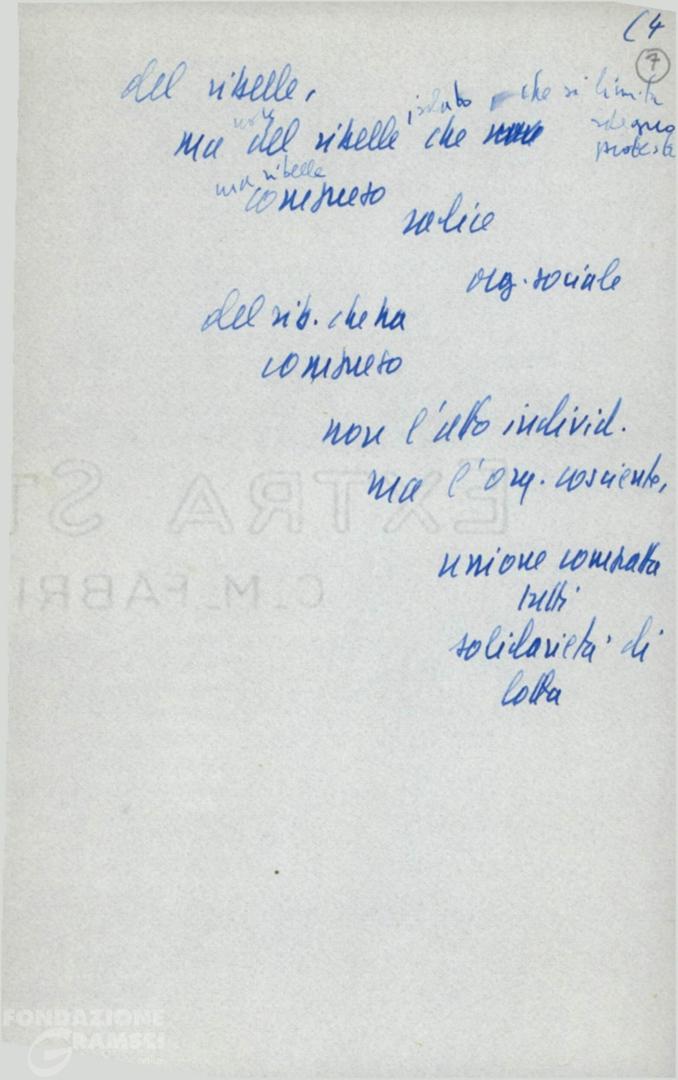 ( 4
7
del ribelle,
isolato, che si limita
non
ma del ribelle che
sdegno
protesta
ma ribelle
compreso
radice
org. sociale
del rib. che ha
compreso
non l'atto individ.
ma l'org. cosciente,
unione compatta
tutti
solidarietà di
lotta
EXTRA ST
C.M. FABRI
FONDAZIONE
GRAMSCI